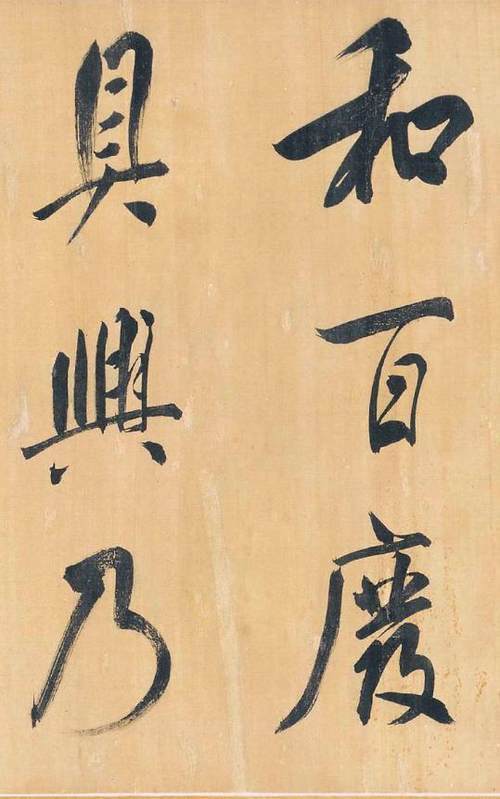 和百廢
具興乃